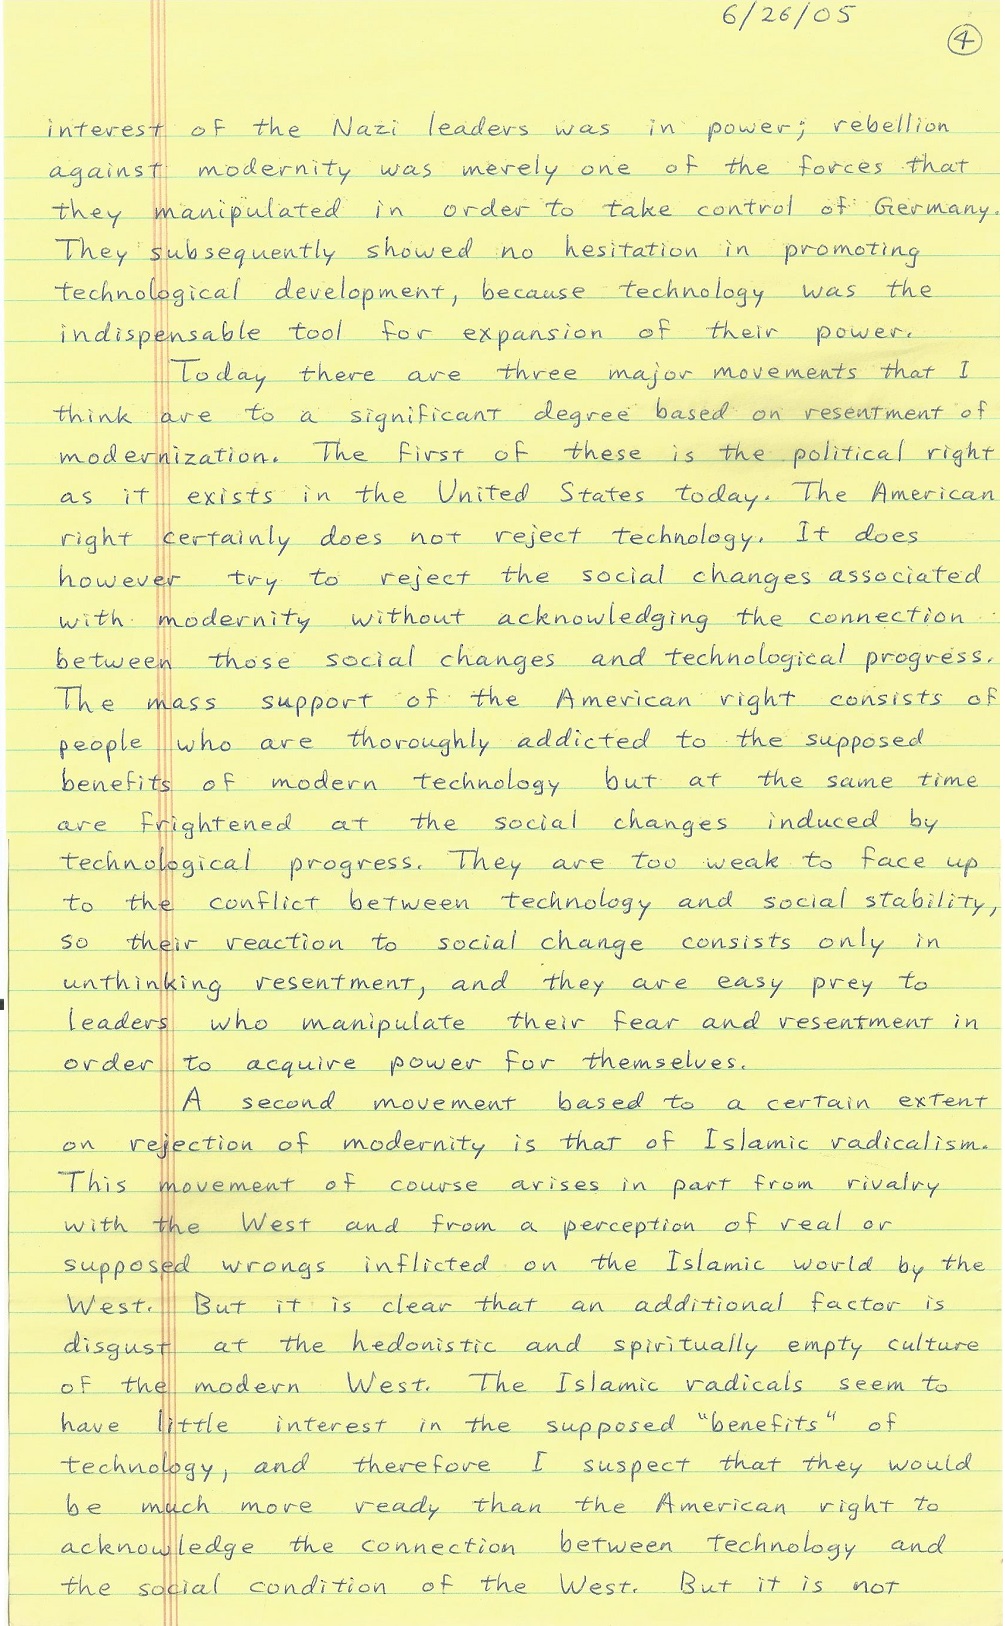 6/26/05
4
interest of the Nazi leaders was in power; rebellion
against modernity was merely one of the forces that
they manipulated in order to take control of Germany.
They subsequently showed no hesitation in promoting
technological development, because technology was the
indispensable tool for expansion of their power.
Today there are three major movements that I
think are to a significant degree based on resentment of
modernization. The first of these is the political right
as it exists in the United States today. The American
right certainly does not reject technology. It does
however try to reject the social changes associated
with modernity without acknowledging the connection
between those social changes and technological progress.
The mass support of the American right consists of
people who are thoroughly addicted to the supposed
benefits of modern technology but at the same time
are frightened at the social changes induced by
technological progress. They are too weak to face up
to the conflict between technology and social stability,
so their reaction to social change consists only in
unthinking resentment, and they are easy prey to
leaders who manipulate their fear and resentment in
order to acquire power for themselves.
A second movement based to a certain extent
on rejection of modernity is that of Islamic radicalism.
This movement of course arises in part from rivalry
with the West and from a perception of real or
supposed wrongs inflicted on the Islamic world by the
West. But it is clear that an additional factor is
disgust at the hedonistic and spiritually empty culture
of the modern West. The Islamic radicals seem to
have little interest in the supposed "benefits" of
technology, and therefore I suspect that they would
be much more ready than the American right to
acknowledge the connection between technology and
the social condition of the West. But it is not